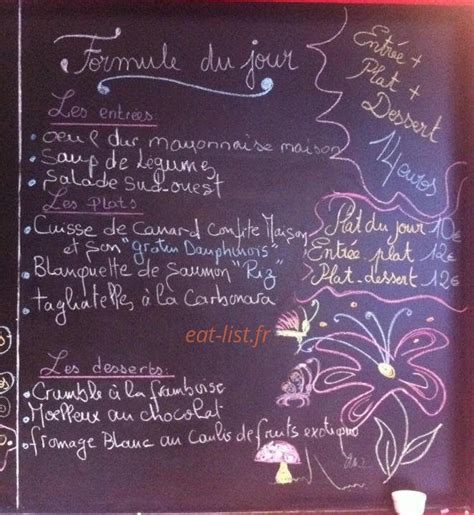 Formule du jour
Les entrées:
oeuf dur mayonnaise maison
Soup de Légumes
Salade Sud-ouest
Les Plats
Cuisse de Canard Confite Maison
et son "gratin Dauphinois"
Blanquette de Saumon "Riz"
tagliatelles à la Carbonara
Les desserts:
Crumble à la framboise
Moelleux au chocolat
fromage Blanc au Caulis de fruits exotique
Entrée +
Plat +
Dessert
14 euros
Plat du jour 10€
Entrée plat 12€
Plat-dessert 12€
eat-list.fr